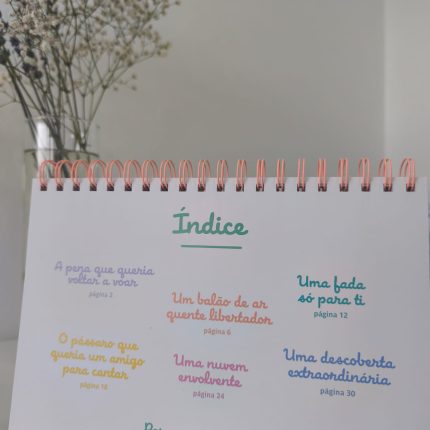 Índice
A pena que queria
voltar a voar
página 2
Um balão de ar
quente libertador
página 6
Uma fada
só para ti
página 12
O pássaro que
queria um amigo
para cantar
página 18
Uma nuvem
envolvente
página 24
Uma descoberta
extraordinária
página 30